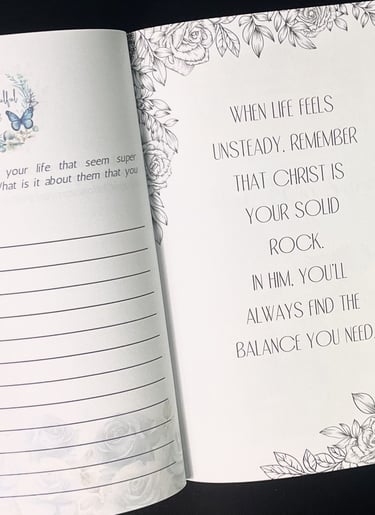 your life that seem super
hat is it about them that you
WHEN LIFE FEELS
UNSTEADY, REMEMBER
THAT CHRIST IS
YOUR SOLID
ROCK.
IN HIM, YOU'LL
ALWAYS FIND THE
BALANCE YOU NEED.